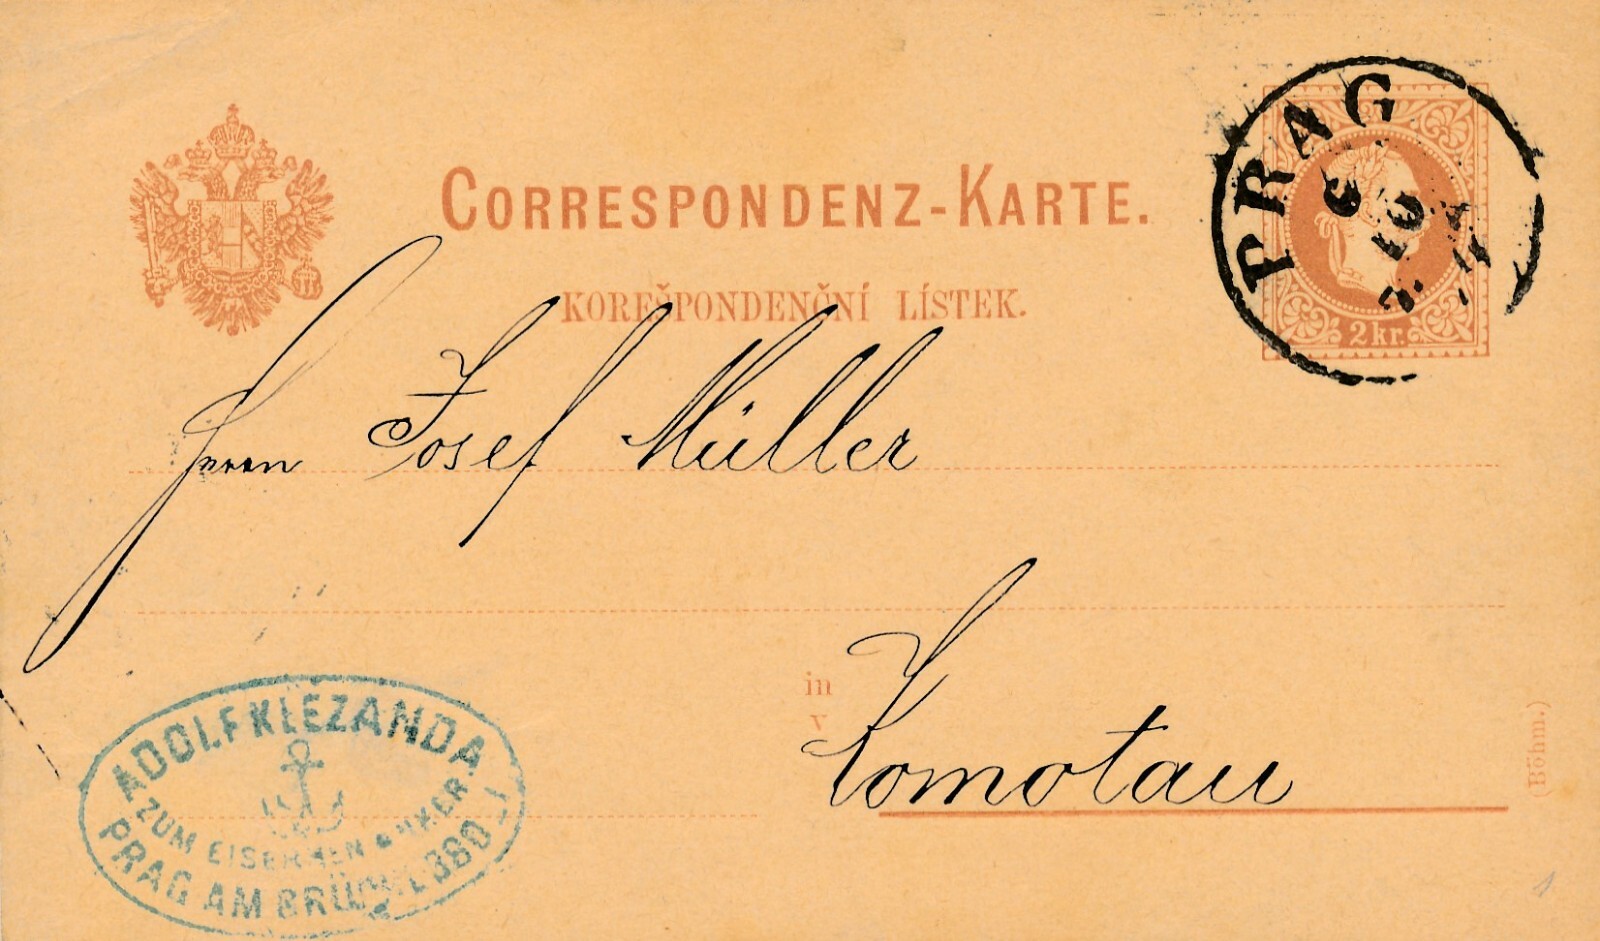 CORRESPONDENZ-KARTE.
KOREŠPONDENČNÍ LÍSTEK.
2 kr.
PRAG
6
10
Herrn Josef Müller
in
v
Komotau
(Böhm.)
ADOLF KLEZANDA
ZUM EISERNEN ANKER
PRAG AM BRÜCKL 380